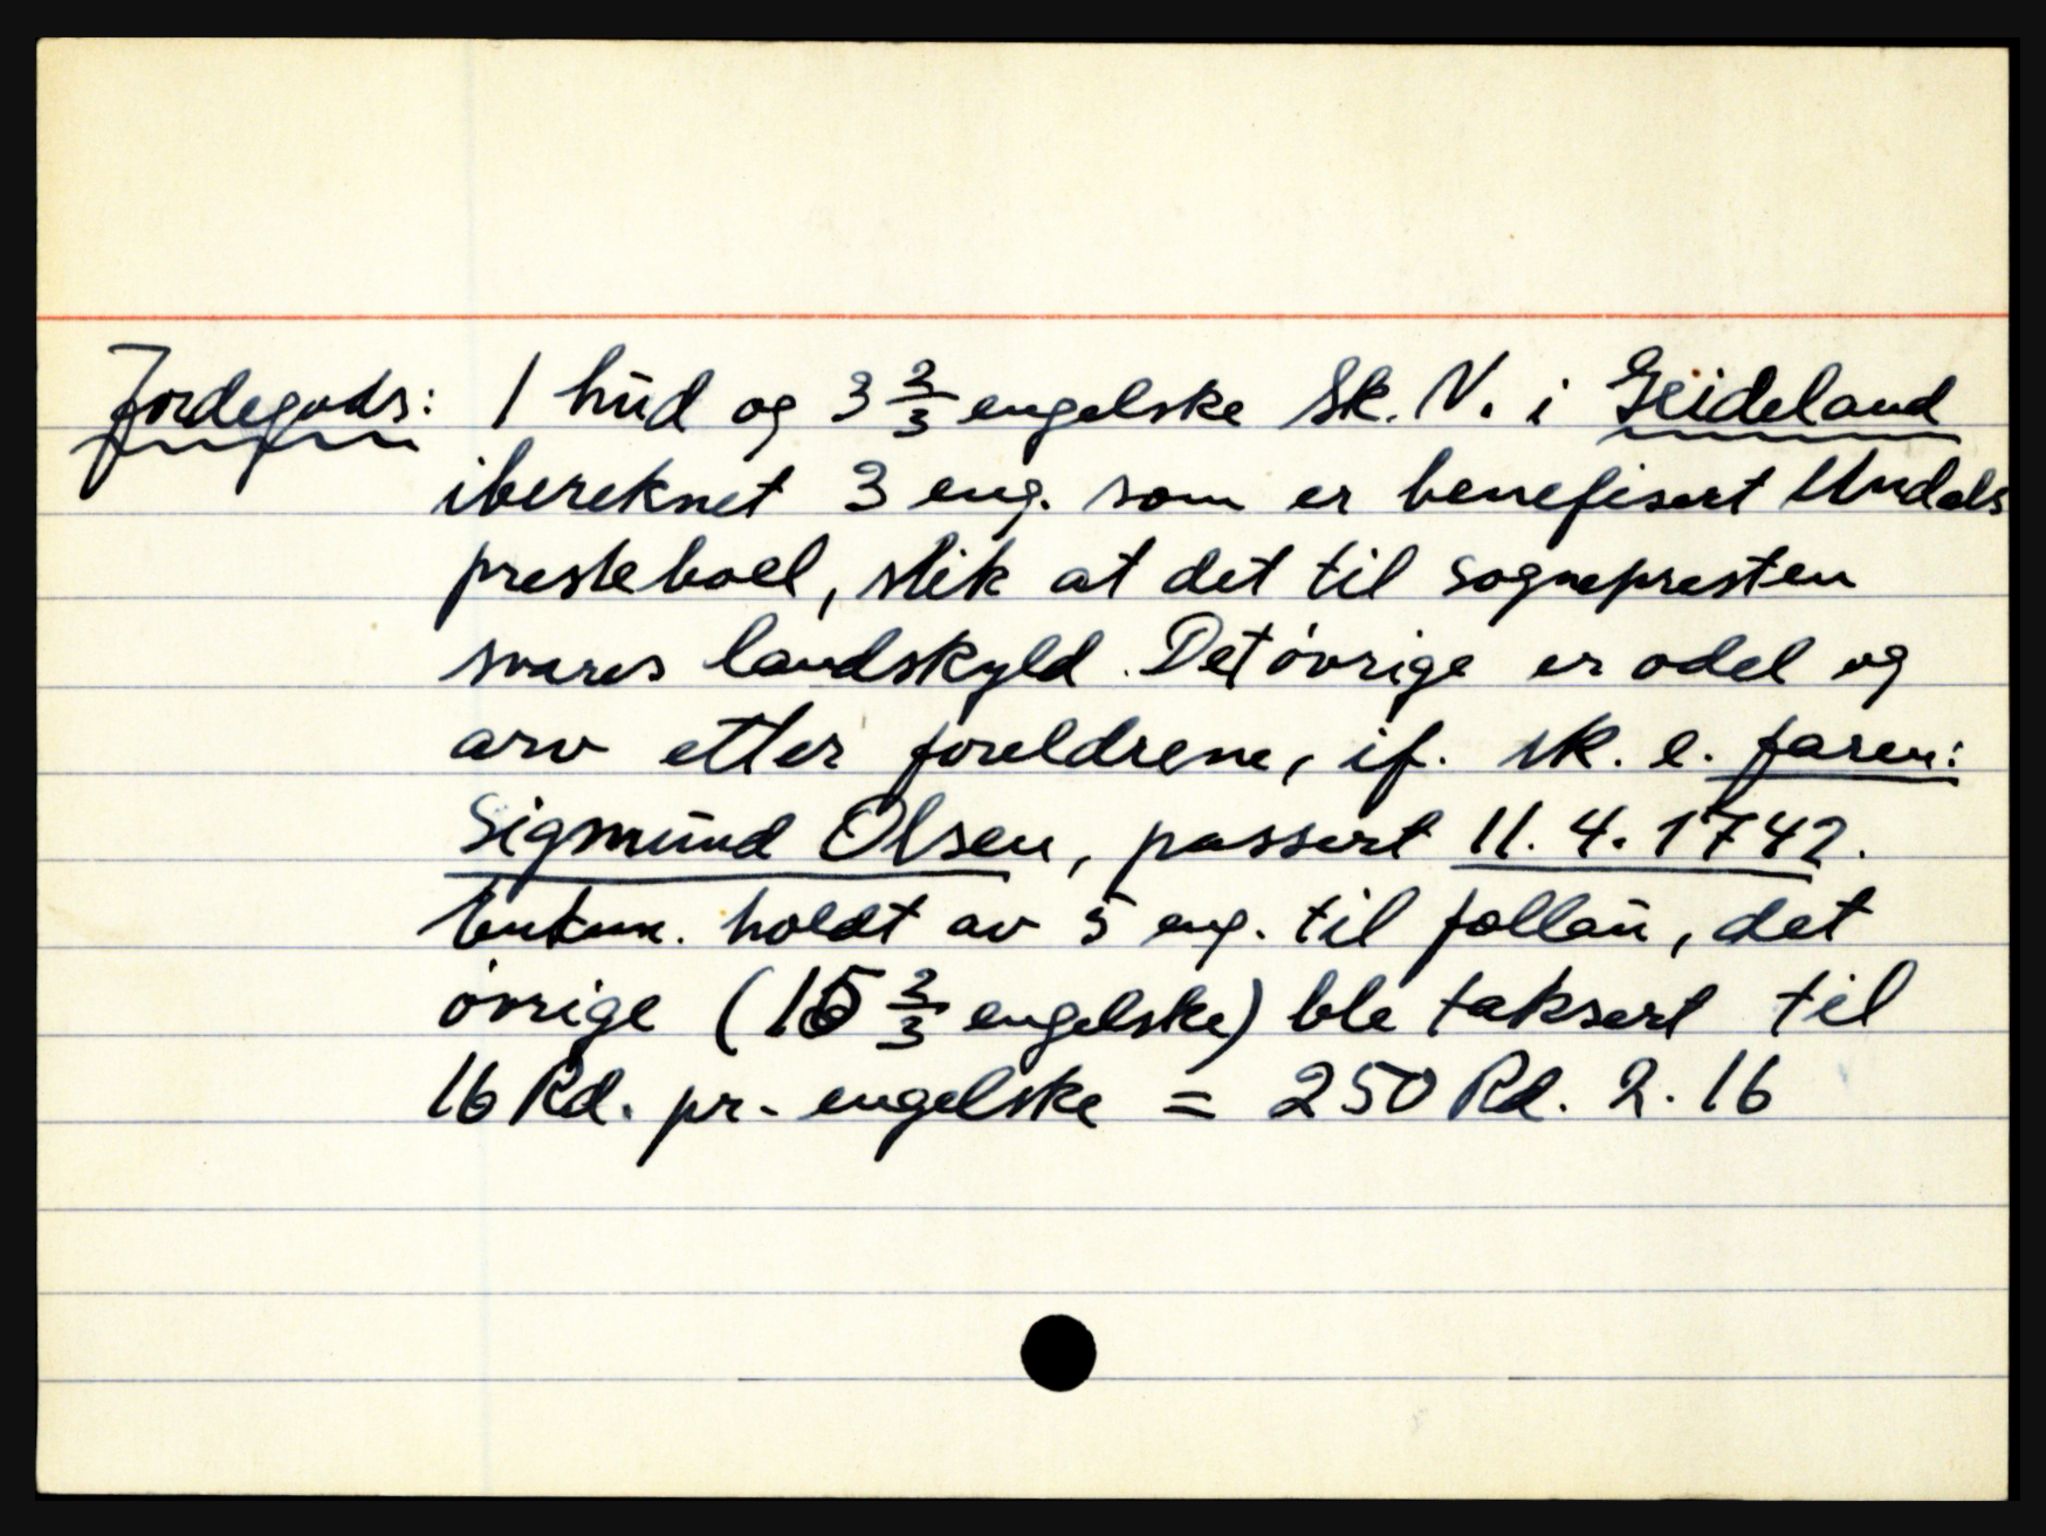 Jordegods: 1 hud og 3 2/3 engelske Sk. N. i Geideland
ibereknet 3 eng. som er benefisert Undals
presteboel, slik at det til sognepresten
svares landskyld. Det øvrige er odel og
arv etter foreldrene, if. sk. e. faren:
Sigmund Olsen, passert 11.4.1742.
holdt av 5 eng. til follau, det
øvrige (15 2/3 engelske) ble taksert til
16 Rd. pr. engelske = 250 Rd. 2. 16